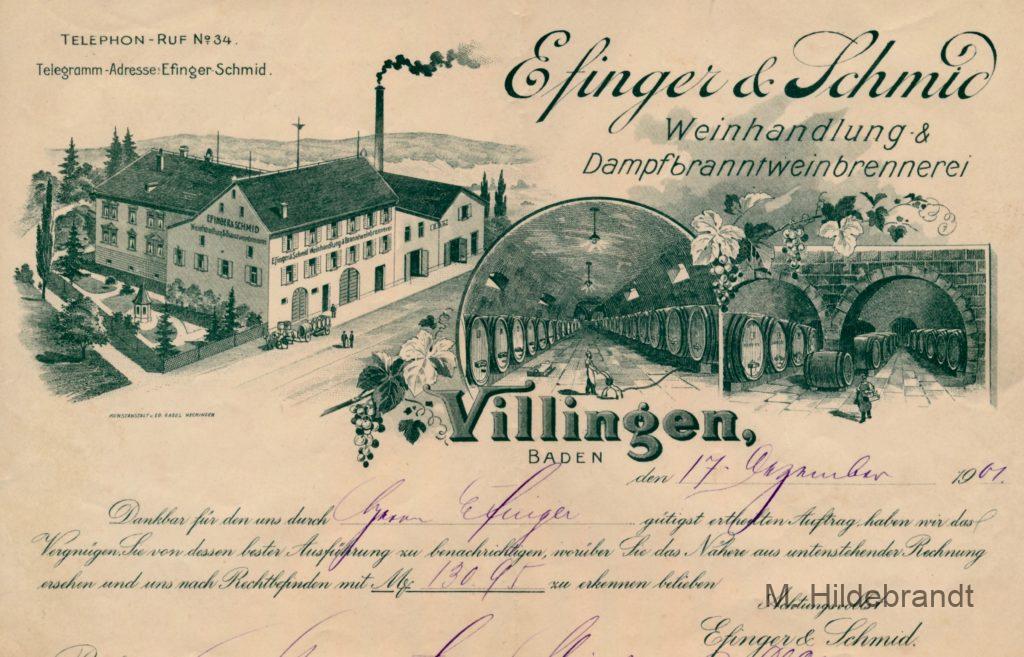 TELEPHON-RUF No 34.
Telegramm-Adresse: Efinger-Schmid.
Efinger & Schmid
Weinhandlung &
Dampfbranntweinbrennerei
EFINGER & SCHMID
Efinger & Schmid Weinhandlung & Branntweinbrennerei
KUNSTANSTALT v. ED. KABEL HECHINGEN
Villingen,
BADEN
den 17. Dezember 1901.
Dankbar für den uns durch Herrn Efinger gütigst ertheilten Auftrag, haben wir das
Vergnügen, Sie von dessen bester Ausführung zu benachrichtigen, worüber Sie das Nähere aus untenstehender Rechnung
ersehen und uns nach Rechtbefinden mit M. 130.95 zu erkennen belieben
Achtungsvollst
M. Hildebrandt
Efinger & Schmid.